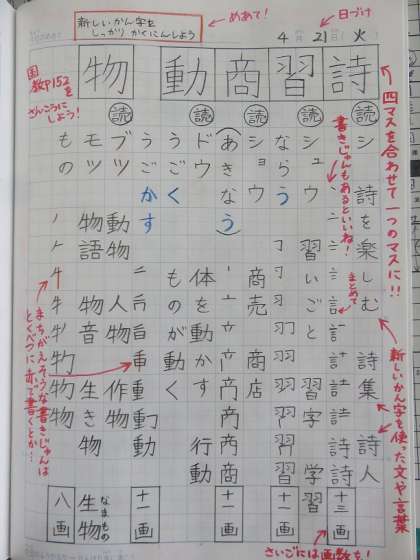 めあて!
新しいかん字を
しっかり かくにんしよう
日づけ
4月21日(火)
四マスを合わせて一つのマスに!!
新しいかん字を使った文や言葉
詩
読 シ 詩を楽しむ 詩集 詩人
書きじゅんもあるといいね!
まとめて
十三画
さいごには画数を!
習
読 シュウ 習いごと 習字 学習
ならう
十一画
商
読 ショウ 商売 商店
(あきなう)
十一画
動
読 ドウ 体を動かす 行動
うごく ものが動く
うごかす
十一画
物
読 ブツ 動物 人物 作物
モツ 物語 物音 生き物 生物 なまもの
もの
八画
国教P152を
さんこうに
しよう!
まちがえそうな書きじゅんは
とくべつに赤で書くとか…